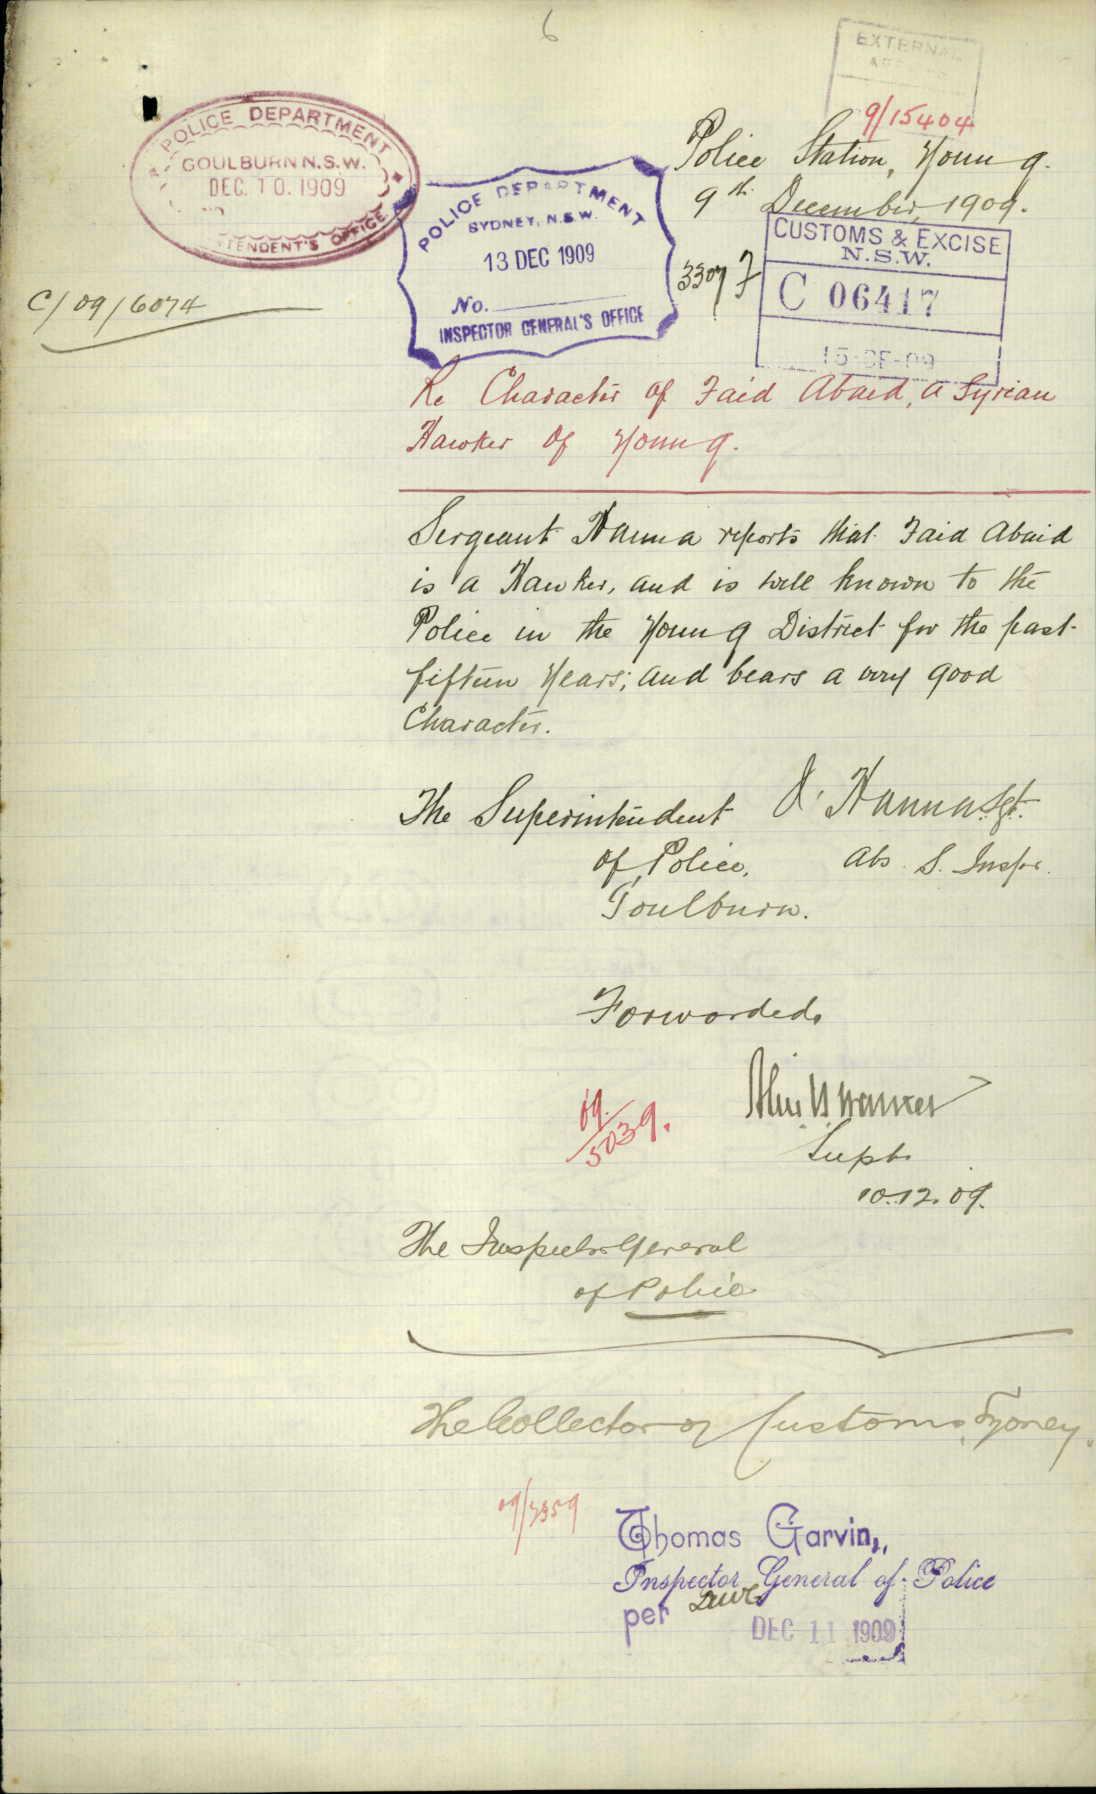 6
EXTERNAL
9/15404
POLICE DEPARTMENT
GOULBURN N.S.W.
DEC. 10. 1909
TENDENT'S OFFICE
Police Station, Young.
9th December, 1909.
POLICE DEPARTMENT
SYDNEY, N.S.W.
13 DEC 1909
No.
INSPECTOR GENERAL'S OFFICE
3307 F
CUSTOMS & EXCISE
N.S.W.
C 06417
C/09/6074
Re Character of Faid Abaid, a Syrian
Hawker of Young.
Sergeant Hanna reports that Faid Abaid
is a Hawker, and is well known to the
Police in the Young District for the past
fifteen Years; and bears a very good
Character.
The Superintendent
of Police,
Goulburn.
Hanna Sgt.
Abs S. Inspr.
Forwarded.
09/5039.
Supt.
10.12.09.
The Inspector General
of Police
The Collector of Customs, Sydney.
Thomas Garvin,
Inspector General of Police
per
DEC 11 1909